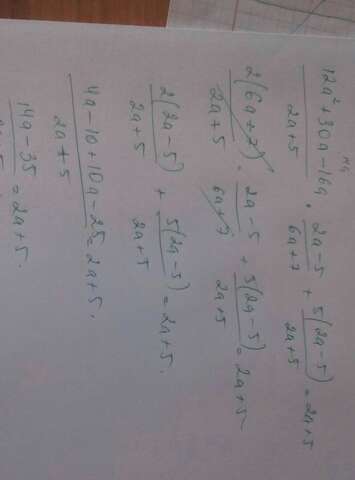 №4
(12a² + 30a - 16a)/(2a+5) · (2a-5)/(6a+7) + 5(2a-5)/(2a+5) = 2a+5
2(6a+7)/(2a+5) · (2a-5)/(6a+7) + 5(2a-5)/(2a+5) = 2a+5
2(2a-5)/(2a+5) + 5(2a-5)/(2a+5) = 2a+5.
(4a-10+10a-25)/(2a+5) = 2a+5.
(14a-35) = 2a+5.